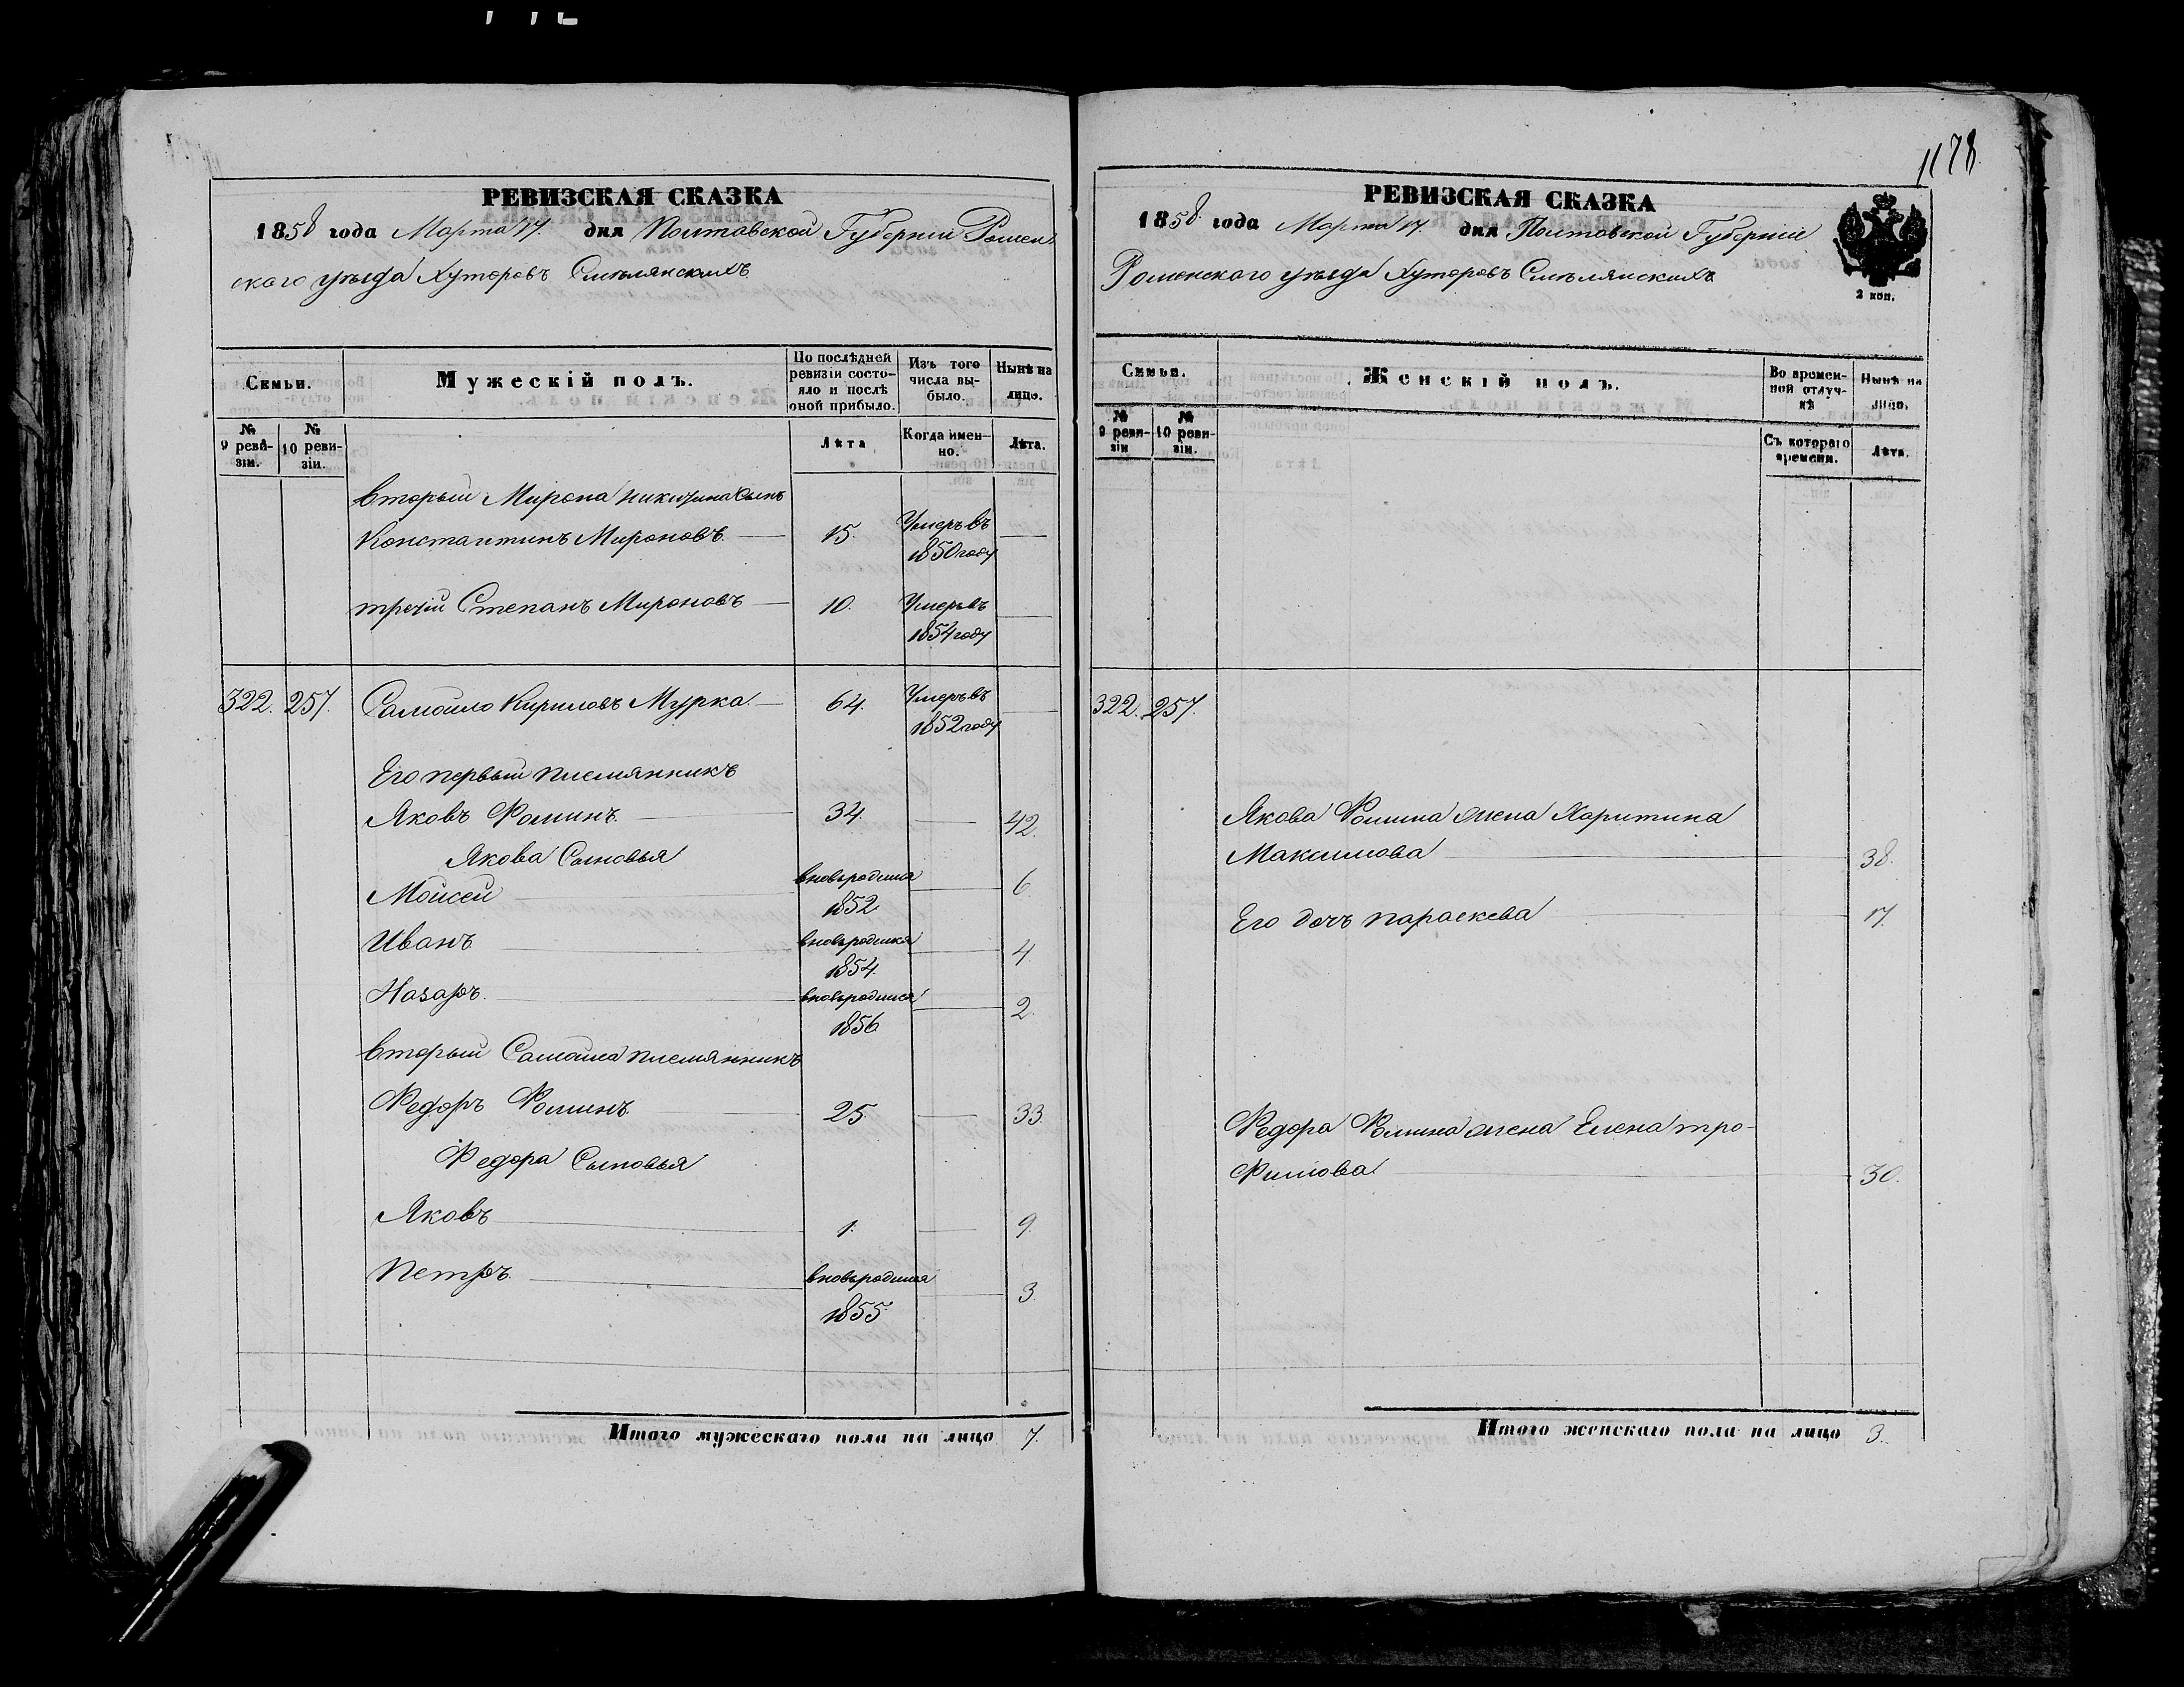 1178.
РЕВИЗСКАЯ СКАЗКА
1858 года Марта 17. дня Полтавской Губерніи Ромен
ского уѣзда Хуторовъ Смѣлянскихъ
Семьи.
Мужескій полъ.
По послѣдней ревизіи состояло и послѣ оной прибыло.
Изъ того числа выбыло.
Нынѣ на лицо.
№ 9 ревизіи.
№ 10 ревизіи.
Лѣта
Когда именно.
Лѣта.
вторый Мирона Никитина Сынъ
Константинъ Мироновъ 15. Умеръ въ 1850 году
третій Степанъ Мироновъ 10. Умеръ въ 1854 году
322. 257. Самойло Кириловъ Мурка 64. Умеръ въ 1852 году
Его первый племянникъ
Яковъ Фоминъ 34. 42.
Якова Сыновья
Мойсей вновьродился 1852 6.
Иванъ вновьродился 1854. 4
Назаръ. вновьродился 1856 2.
вторый Самойла племянникъ
Федоръ Фоминъ 25 33.
Федора Сыновья
Яковъ 1. 9.
Петръ вновьродился 1855. 3.
Итого мужескаго пола на лицо 7.
РЕВИЗСКАЯ СКАЗКА
1858 года Марта 17. дня Полтавской Губерніи
Роменского уѣзда Хуторовъ Смѣлянскихъ
2 коп.
Семьи.
Женскій полъ.
Во временной отлучкѣ
Нынѣ на лицо.
№ 9 ревизіи
№ 10 ревизіи.
Съ котораго времени.
Лѣта.
322. 257.
Якова Фомина жена Харитина
Максимова 38.
Его дочь Параскева 17.
Федора Фомина жена Елена Тро-
фимова 30.
Итого женскаго пола на лицо 3.